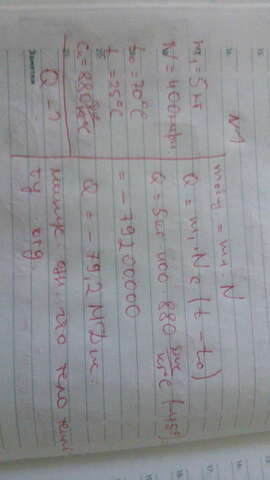 N1
m₁ = 5 кг
N = 400
t₀ = 70°C
t = 25°C
C = 880 Дж/кг°C
Q - ?
mобщ = m₁ · N
Q = m₁ · N c (t - t₀)
Q = 5 кг · 400 · 880 Дж/кг°C (-45°)
= - 79200000
Q = - 79,2 МДж.
что тело